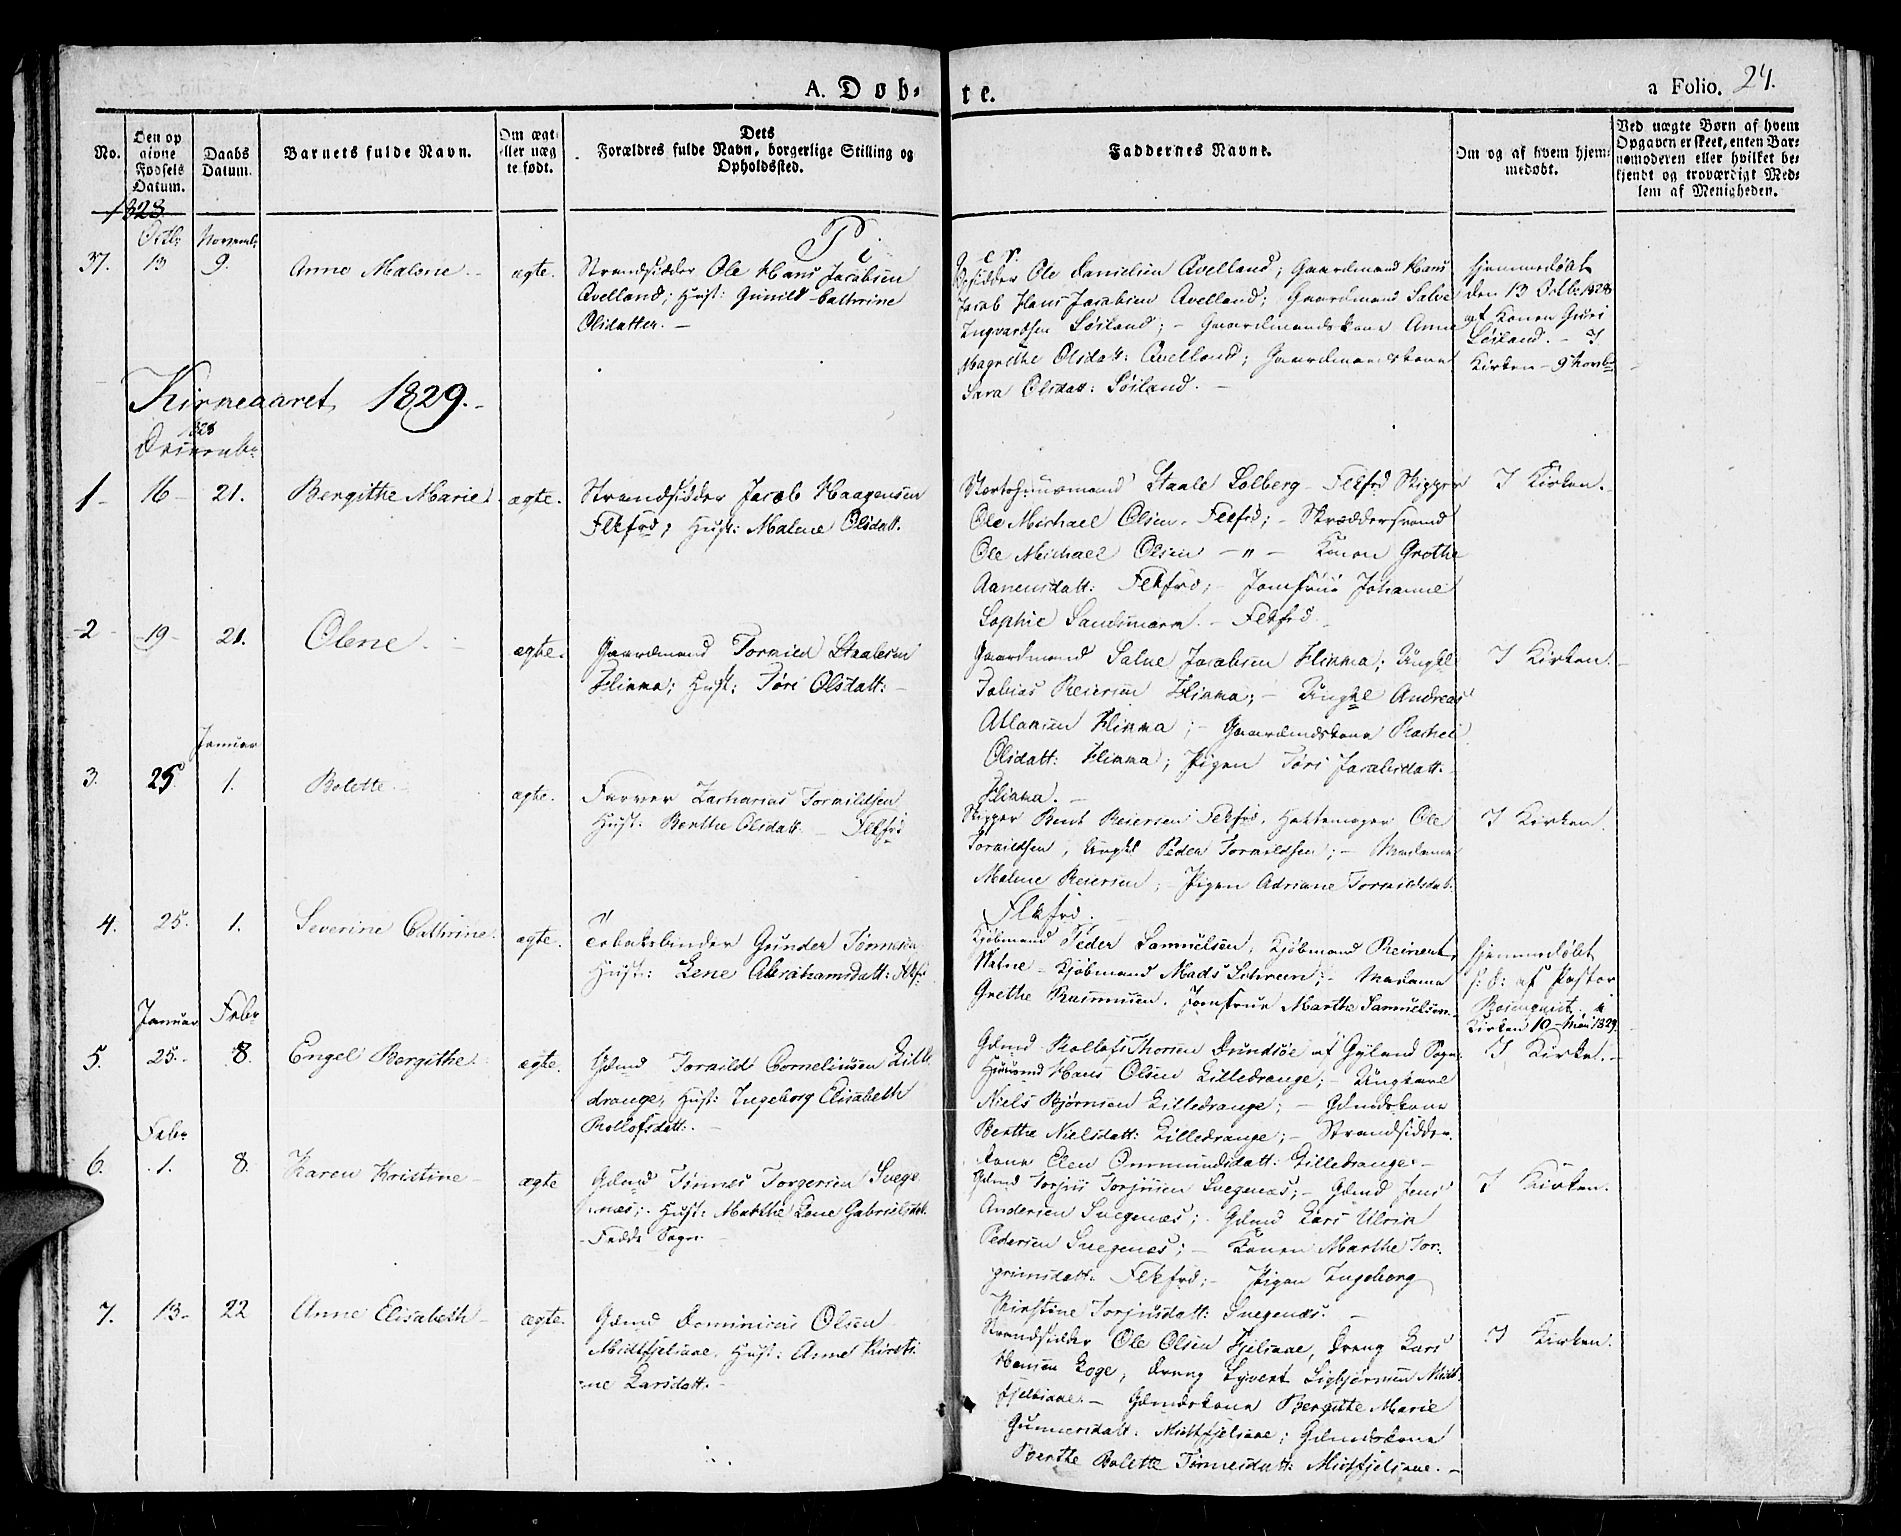 A. Døb-
te.
a Folio. 24.
No.
Den op
givne
Fødsels
Datum.
Daabs
Datum.
Barnets fulde Navn.
Om ægt-
eller uæg
te født.
Dets
Forældres fulde Navn, borgerlige Stilling og
Opholdssted.
Faddernes Navne.
Om og af hvem hjem-
medøbt.
Ved uægte Børn af hvem
Opgaven er skeet, enten Bar-
nemoderen eller hvilket be-
kjendt og troværdigt Med-
lem af Menigheden.
1828
Octb: Novemb:
Piger.
37. 13 9. Anne Malene. ægte.
Strandsidder Ole Hans Jacobsen
Avelland; Hust: Gunild Cathrine
Olsdatter. —
Ole Danielsen Avelland; Gaardmand Hans
Jacob Hans Jacobsen Avelland; Gaardmand Salve
Ingvardsen Søiland; — Gaardmandskone Anne
Magrethe Olsdatt: Avelland; Gaardmandskone
Sara Olsdatt: Søiland. —
Hjemmedøbt
den 13 Octb: 1828
af Konen Guri
Søiland. — I
Kirken — 9 Novbr
Kirkeaaret 1829. —
1828
Decembr
1 — 16 — 21. Bergithe Marie ægte.
Strandsidder Jacob Haagensen
Flekfrd; Hust: Malene Olsdatt.
Staale Solberg — Flekfrd Skipper
Ole Michael Olsen. Flekfrd; — Skræddersvend
Ole Michael Olsen — „ — Konen Grethe
Aanensdatt: Flekfrd; — Jomfrue Johanne
Sophie Sandsmark. — Flekfrd.
I Kirken.
2 — 19 — 21. Olene. — ægte.
Gaardmand Torkild Staalesen
Hinna; Hust: Tøri Olsdatt: —
Gaardmand Salve Jacobsen Hinna; Ungkl
Tobias Reiersen Hinna; — Ungkl Andreas
Atlaksen Hinna; — Gaardmdskone Rachel
Olsdatt: Hinna; Pigen Tøri Jacobsdatt:
Hinna. —
I Kirken.
Januar
3. 25. 1. Bolette. — ægte.
Farver Zacharias Torkildsen
Hust: Berthe Olsdatt. — Flekfrd
Skipper Bent Reiersen Flekfrd. Hattemager Ole
Torkildsen, Ungkl Peder Torkildsen; — Madame
Malene Reiersen; — Pigen Adriane Torkildsdat.
Flekfrd.
I Kirken.
4. 25. 1. Severine Cathrine. ægte.
Tobaksspinder Gunder Tønnesen
Hust: Lene Abrahamsdatt: Flekf:
Kjøbmand Peder Samuelsen, Kjøbmand Reinert
Watne — Kjøbmand Mads Schreen; — Madame
Grethe Rasmussen. Jomfrue Marthe Samuelsen.
Hjemmedøbt
s: d: af Pastor
Rosenqvist. I
Kirken 10 — Mai 1829.
Januar Febr
5. 25. 8. Engel Bergithe. ægte.
Gdmd Torkild Corneliussen Lille
drange, Hust: Ingeborg Elisabeth
Rollofsdatt. —
Gdmd Rollof Thorsen af Gyland Sogn
Hans Olsen Lilledrange; — Ungkarl
Niels Bjørnsen Lilledrange; — Gdmdskone
Berthe Nielsdatt: Lilledrange; — Strandsidder
kone Elen Ommundsdatt: Lilledrange. —
I Kirken. —
Febr
6. 1. 8. Karen Kristine — ægte
Gdmd Tønnes Torgersen Svege
næs; Hust: Marthe Lene Gabrielsdat.
Fedde Sogn. —
Gdmd Torjus Torjussen Svegenæs; — Gdmd Jens
Andersen Svegenæs; Gdmd Lars Ulrik
Pedersen Svegenæs; — Konen Marthe Tor-
grimsdatt: Flekfrd; — Pigen Ingeborg
Kirstine Torjusdatt: Svegenæs. —
I Kirken.
7. 13. 22 Anne Elisabeth — ægte.
Gdmd Dominicus Olsen
Midtfjeliane, Hust: Anne Kirsti
ne Larsdatt. —
Strandsidder Ole Olsen Fjeliane, Dreng Lars
Hansen Loge, Dreng Syvert Sigbjørnsen Midt-
fjeliane. — Gdmdskone Bergitte Marie
Gunnersdatt: Midtfjeliane; Gdmdskone
Berthe Bolette Tønnesdatt: Midtfjeliane. —
I Kirken.